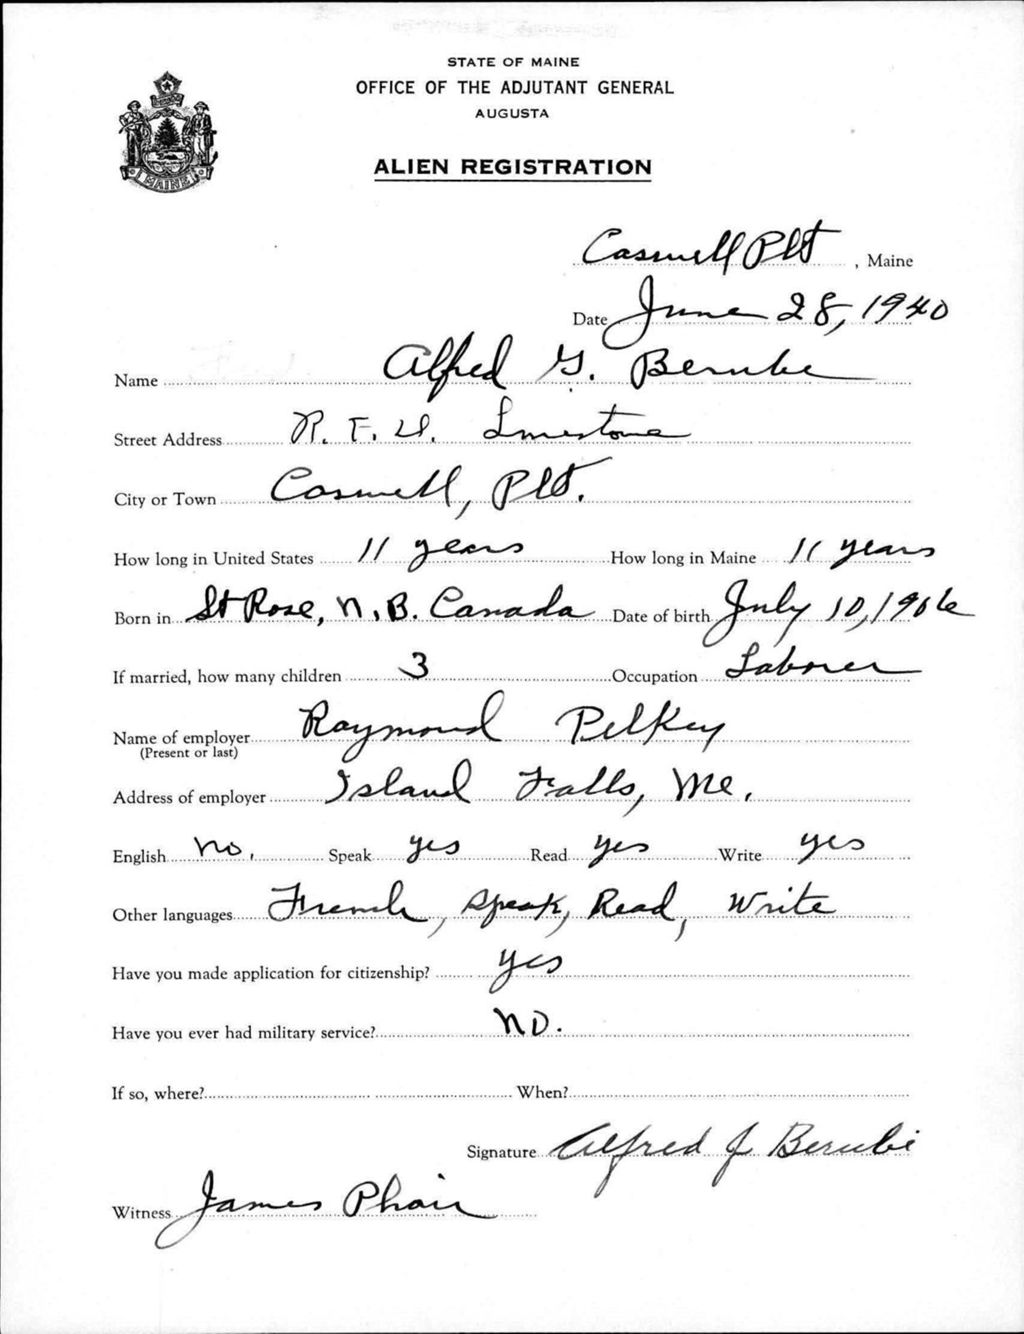 STATE OF MAINE
OFFICE OF THE ADJUTANT GENERAL
AUGUSTA
MAINE
ALIEN REGISTRATION
Caswell Plt, Maine
Date June 28, 1940
Name Alfred G. Berube
Street Address R. F. D. Limestone
City or Town Caswell, Plt.
How long in United States 11 years How long in Maine 11 years
Born in St Rose, N.B. Canada Date of birth July 10, 1906
If married, how many children 3 Occupation Laborer
Name of employer Raymond Pelkey
(Present or last)
Address of employer Island Falls, Me.
English No. Speak yes Read yes Write yes
Other languages French, Speak, Read, Write
Have you made application for citizenship? yes
Have you ever had military service? No.
If so, where? When?
Signature Alfred J Berube
Witness James Phair